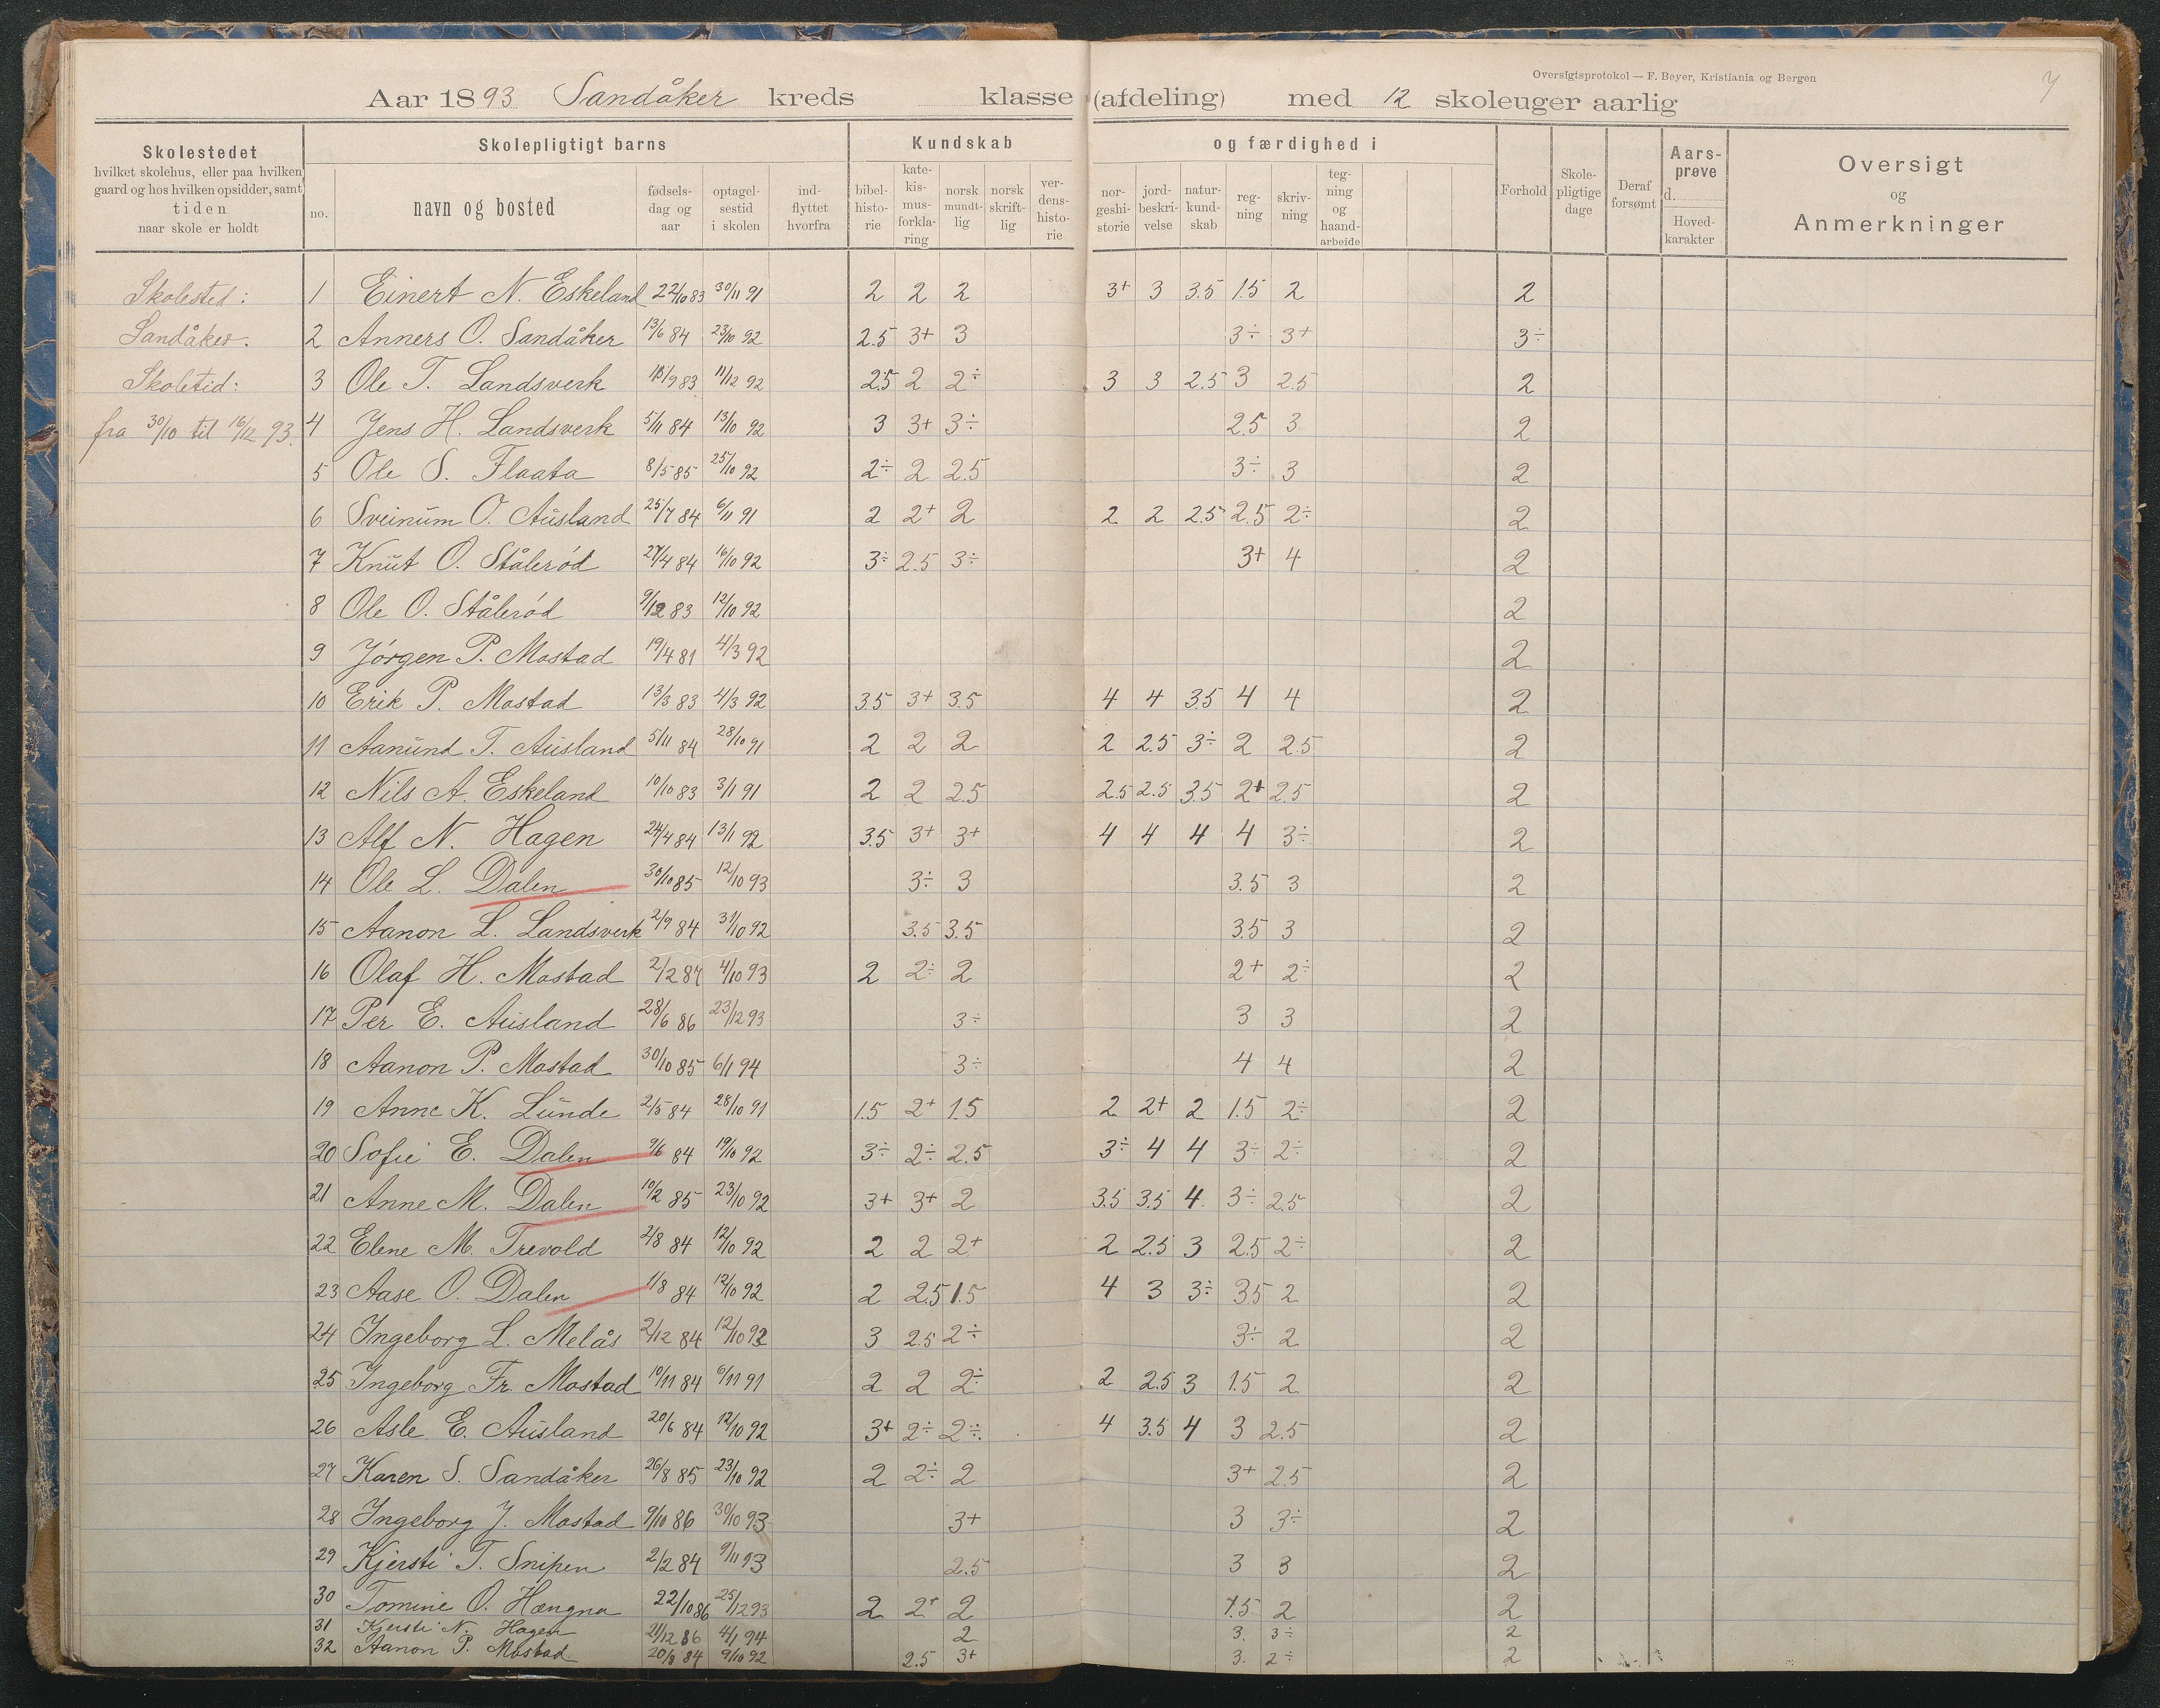 Oversigtsprotokol — F. Beyer, Kristiania og Bergen
7
Aar 1893 Sandåker kreds klasse (afdeling) med 12 skoleuger aarlig
Skolestedet hvilket skolehus, eller paa hvilken gaard og hos hvilken opsidder, samt tiden naar skole er holdt
Skolepligtigt barns
no. navn og bosted fødsels-dag og aar optagel-sestid i skolen ind-flyttet hvorfra
Kundskab og færdighed i
bibel-histo-rie kate-kis-mus-forkla-ring norsk mundt-lig norsk skrift-lig ver-dens-histo-rie nor-geshi-storie jord-beskri-velse natur-kund-skab reg-ning skriv-ning teg-ning og haand-arbeide
Forhold Skole-pligtige dage Deraf forsømt Aars-prøve d. Hoved-karakter
Oversigt og Anmerkninger
Skolested:
Sandåker.
Skoletid:
fra 30/10 til 16/12 93.
1 Einert N. Eskeland 22/10 83 30/11 91 2 2 2 3+ 3 3.5 1.5 2 2
2 Anners O. Sandåker 13/6 84 23/10 92 2.5 3+ 3 3÷ 3+ 3÷
3 Ole T. Landsverk 18/9 83 11/12 92 2.5 2 2÷ 3 3 2.5 3 2.5 2
4 Jens H. Landsverk 5/11 84 13/10 92 3 3+ 3÷ 2.5 3 2
5 Ole S. Flaata 8/5 85 25/10 92 2÷ 2 2.5 3÷ 3 2
6 Sveinum O. Ausland 25/7 84 6/11 91 2 2+ 2 2 2 2.5 2.5 2÷ 2
7 Knut O. Stålerød 27/4 84 16/10 92 3÷ 2.5 3÷ 3+ 4 2
8 Ole O. Stålerød 9/12 83 12/10 92 2
9 Jørgen P. Mostad 19/4 81 4/3 92 2
10 Erik P. Mostad 13/3 83 4/3 92 3.5 3+ 3.5 4 4 3.5 4 4 2
11 Aanund T. Ausland 5/11 84 28/10 91 2 2 2 2 2.5 3÷ 2 2.5 2
12 Nils A. Eskeland 10/10 83 3/1 91 2 2 2.5 2.5 2.5 3.5 2+ 2.5 2
13 Alf N. Hagen 24/4 84 13/1 92 3.5 3+ 3+ 4 4 4 4 3÷ 2
14 Ole L. Dalen 30/10 85 12/10 93 3÷ 3 3.5 3 2
15 Aanon L. Landsverk 2/9 84 31/10 92 3.5 3.5 3.5 3 2
16 Olaf H. Mostad 2/2 84 4/10 93 2 2÷ 2 2+ 2÷ 2
17 Per E. Ausland 28/6 86 23/12 93 3÷ 3 3 2
18 Aanon P. Mostad 30/10 85 6/1 94 3÷ 4 4 2
19 Anne K. Lunde 2/5 84 28/10 91 1.5 2+ 1.5 2 2+ 2 1.5 2÷ 2
20 Sofie E. Dalen 9/6 84 19/10 92 3÷ 2÷ 2.5 3÷ 4 4 3÷ 2÷ 2
21 Anne M. Dalen 10/2 85 23/10 92 3+ 3+ 2 3.5 3.5 4 3÷ 2.5 2
22 Elene M. Trevold 2/8 84 12/10 92 2 2 2+ 2 2.5 3 2.5 2÷ 2
23 Aase O. Dalen 1/8 84 12/10 92 2 2.5 1.5 4 3 3÷ 3.5 2 2
24 Ingeborg L. Melås 2/12 84 12/10 92 3 2.5 2÷ 3÷ 2 2
25 Ingeborg Fr. Mostad 10/11 84 6/11 91 2 2 2÷ 2 2.5 3 1.5 2 2
26 Asle E. Ausland 20/6 84 12/10 92 3+ 2÷ 2÷ 4 3.5 4 3 2.5 2
27 Karen S. Sandåker 26/8 85 23/10 92 2 2÷ 2 3+ 2.5 2
28 Ingeborg J. Mostad 9/10 86 30/10 93 3+ 3 3÷ 2
29 Kjersti T. Snipen 2/2 84 9/11 93 2.5 3 3 2
30 Tomine O. Hængna 22/10 86 25/12 93 2 2+ 2 1.5 2 2
31 Kjersti N. Hagen 21/12 86 4/1 94 2 3. 3÷ 2
32 Aanon P. Mostad 20/8 84 9/10 92 2.5 3+ 3. 2÷ 2